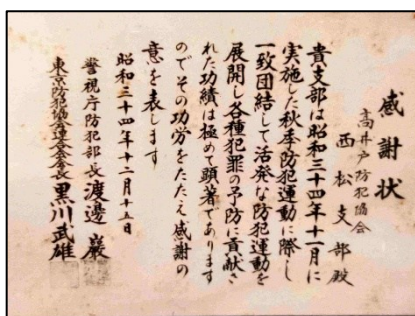 感謝状
高井戸防犯協会
西松支部殿
貴支部は昭和三十四年十一月に
実施した秋季防犯運動に際し
一致団結して活発な防犯運動を
展開し各種犯罪の予防に貢献さ
れた功績は極めて顕著であります
のでその功労をたたえ感謝の
意を表します
昭和三十四年十二月十五日
警視庁防犯部長 渡邊 巌
東京防犯協会連合会会長 黒川武雄